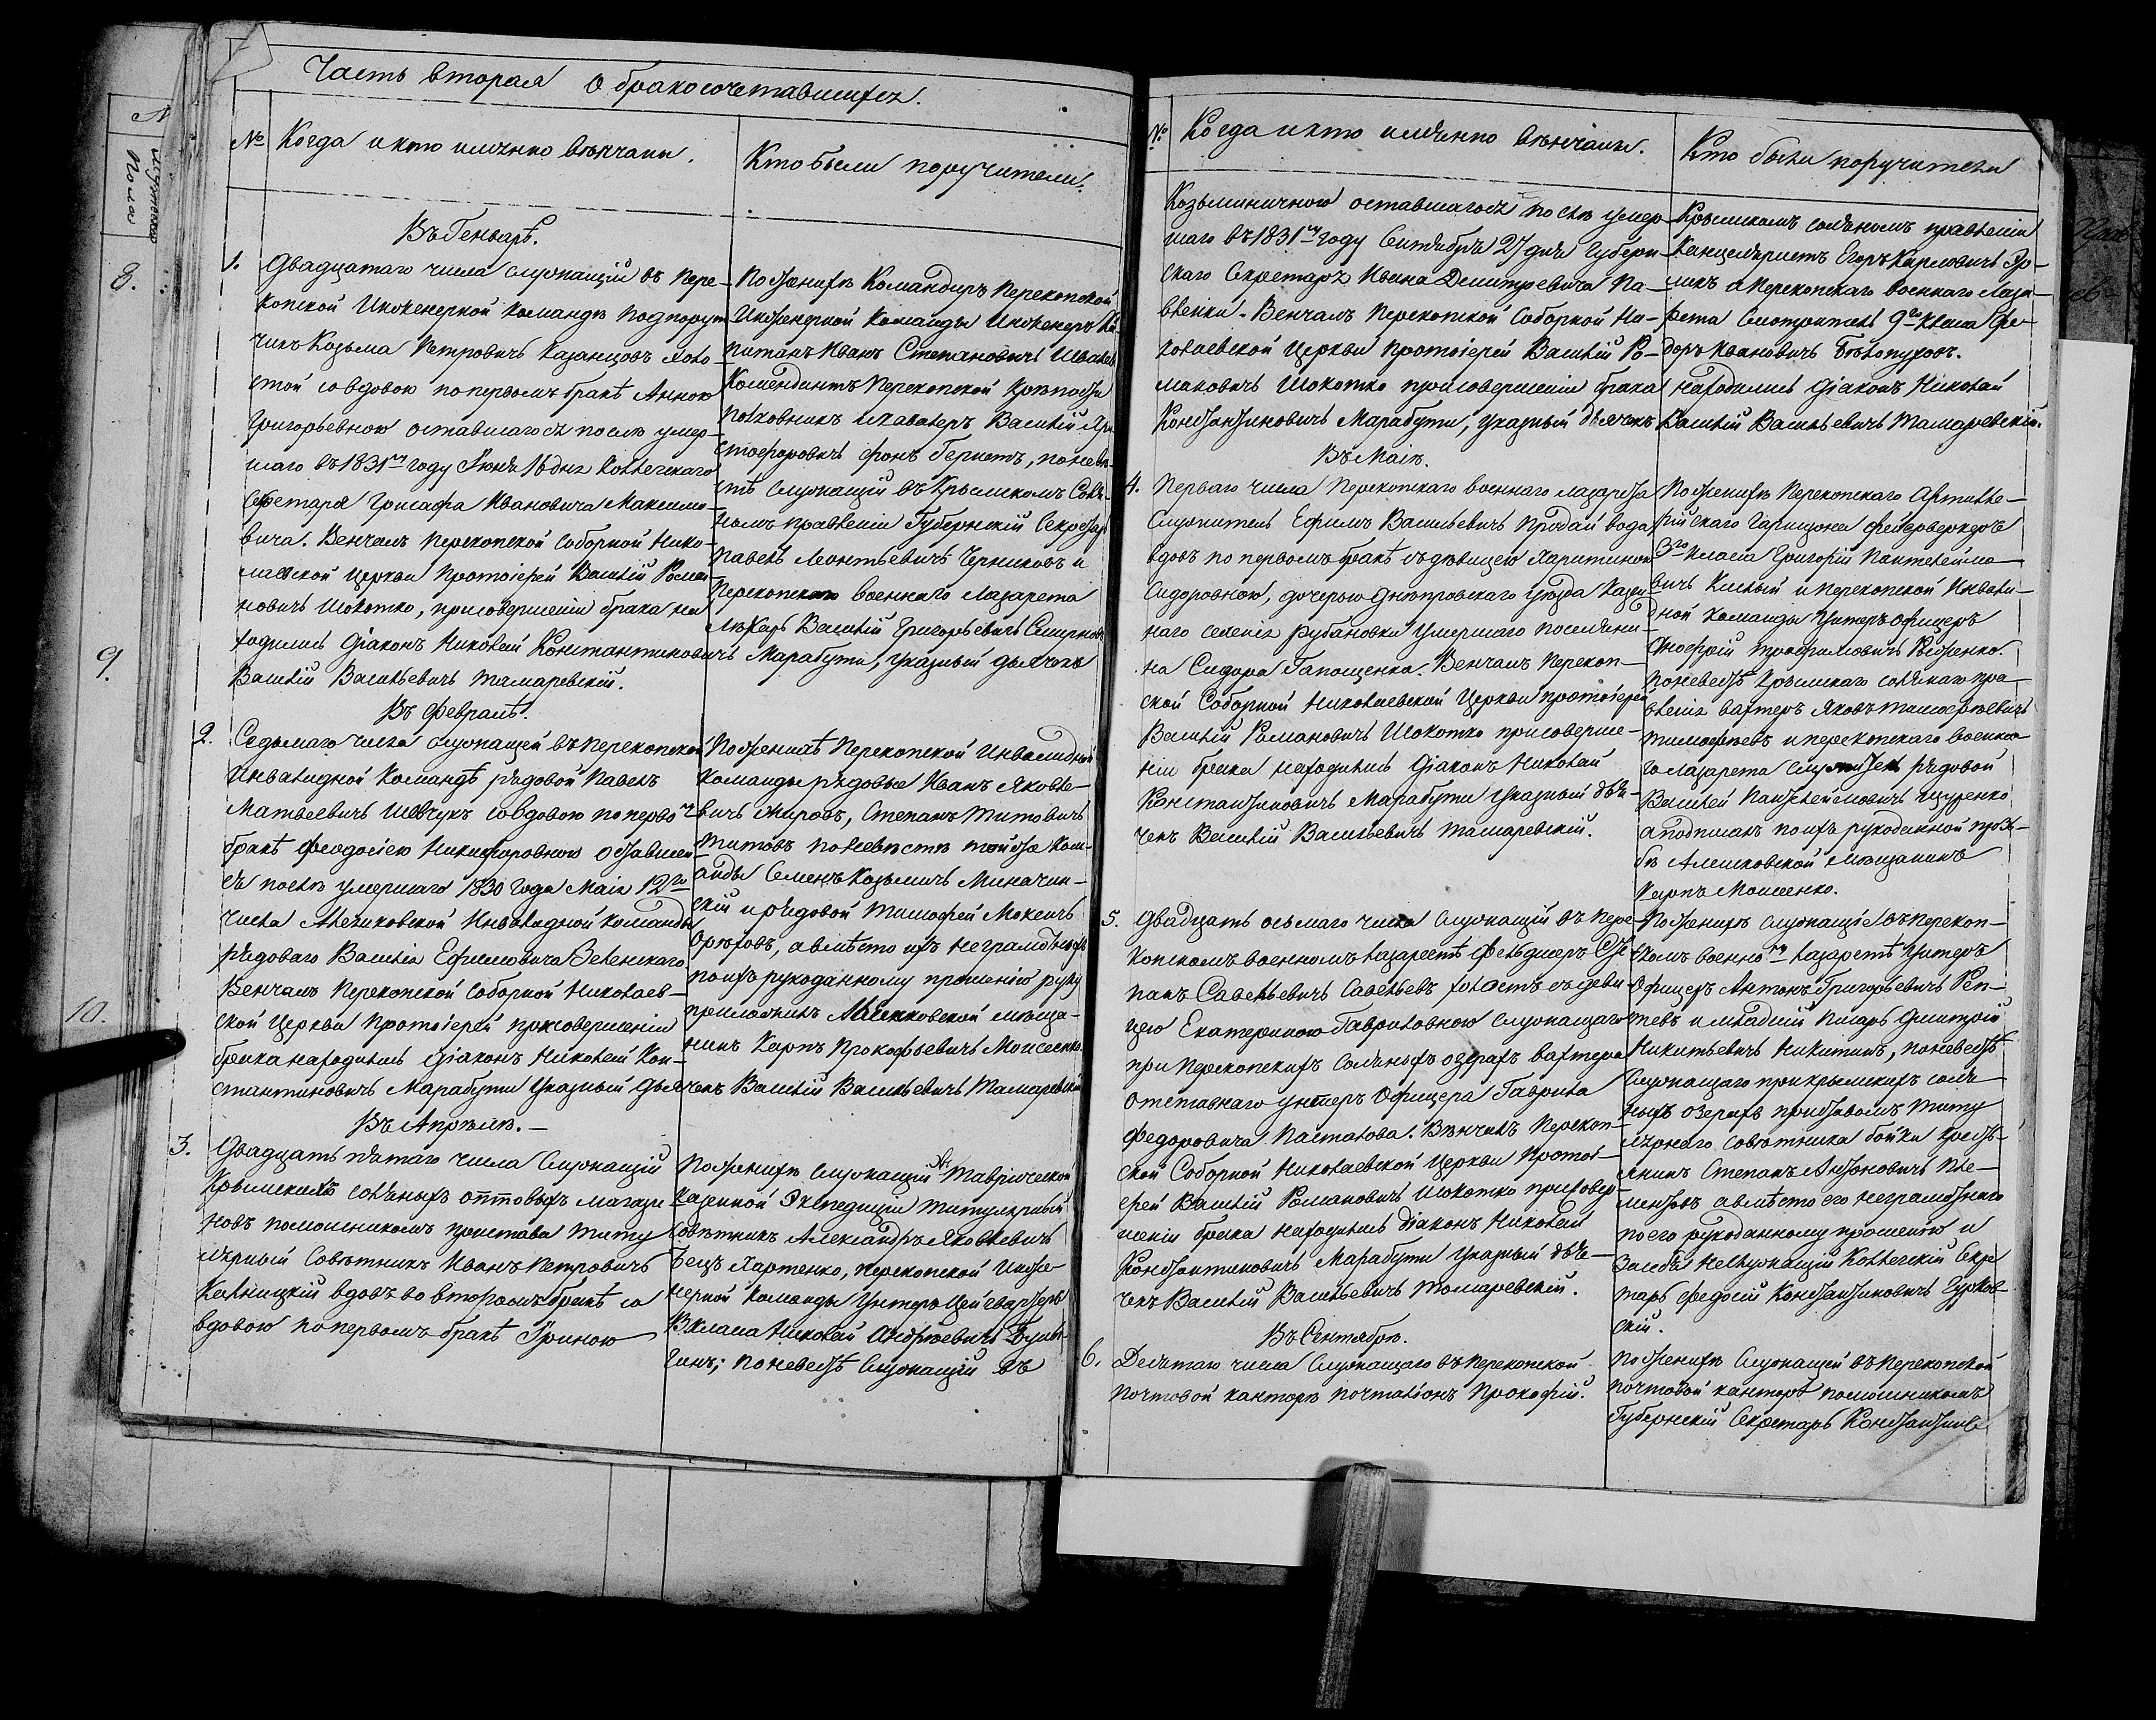 Часть вторая о бракосочетавшихся.
№
Когда и кто именно вѣнчаны.
Кто были поручители.
Въ Генварѣ.
1.
Двадцатаго числа служащій въ Пере-
копской Инженерной Командѣ подпорут
чикъ Козьма Петровичъ Казанцовъ холо-
стой со вдовою по первомъ бракѣ Анною
Григорьевною оставшагося послѣ умер-
шаго въ 1831мъ году Іюня 16 дня Коллегскаго
Секретаря Ивановича Максимо-
вича. Венчалъ Перекопской соборной Нико-
лаевской Церкви Протоіерей Василій Рома-
новичъ Шокотко, присовершеніи брака на
ходились Діаконъ Николай Константиновичъ Марабути, указный дьячокъ
Василій Васильевичъ Тамаревскій.
По женихѣ Командиръ Перекопской
Инженерной Команды Инженеръ Ка-
питанъ Иванъ Степановичъ
Комендантъ Перекопской крѣпости
Полковникъ и Кавалеръ Василій Хри
стофоровичъ фонъ Гернетъ, по невѣ-
стѣ служащій въ Крымскомъ Соля-
номъ правленіи Губернскій Секретарь
Павелъ Леонтьевичъ Черниковъ и
Перекопскаго военнаго Лазарета
Лѣкарь Василій Григорьевичъ Смирновъ
Въ Февралѣ.
2.
Седьмаго числа служащей въ Перекопской
Инвалидной Командѣ рядовой Павелъ
Матвеевичъ Шевчукъ совдовою по первом
бракѣ Феодосіею Никифоровною оставшей
ся послѣ умершаго 1830 года Маія 12го
числа Алешковской Инвалидной команды
рядоваго Василія Ефимовича Зеленскаго
Венчалъ Перекопской соборной Николаев-
ской Церкви Протоіерей присовершеніи
брака находились Діаконъ Николай Кон-
стантиновичъ Марабути Указный Дьячекъ Василій Васильевичъ Тамаревскій
По женихѣ Перекопской Инвалидной
команды рядовые Иванъ Яковле-
вичъ Жировъ, Степанъ Титовичъ
Титовъ по невѣстѣ той же Ком-
анды Семенъ Козьмичъ Миначин-
скій и рядовой Тимофей Мокеичъ
Орѣховъ, а вмѣсто ихъ неграмотныхъ
по ихъ рукоданному прошенію руку
приложилъ Алешковской мѣща-
нинъ Карпъ Прокофьевичъ Моисеенко.
Въ Апрѣлѣ.—
3.
Двадцать пятаго числа Служащій
Крымскихъ соляныхъ оптовыхъ магази
новъ помошникомъ пристава Титу
лярный Совѣтникъ Иванъ Петровичъ
Кальницкій вдовъ во второмъ бракѣ со
вдовою по первомъ бракѣ Іриною
По женихѣ служащій въ Таврической
Казенной Экспедиціи Титулярный
Совѣтникъ Александръ Яковлевичъ
Бецъ Хартенко, Перекопской Инже-
нерной Команды Унтеръ Цейгвартеръ
3 класа Николай Андрѣевичъ
; По невестѣ Служащій въ
№
Когда и кто имянно вѣнчаны.
Кто были поручители
Козьминичною оставшагося послѣ умер
шаго въ 1831мъ году Сентября 27 дня Губерн-
скаго Секретаря Ивана Демитревича Па-
вленки. Венчалъ Перекопской Соборной Ни-
колаевской Церкви Протоіерей Василій Ро-
мановичъ Шокотко присовершеніи брака находились Діаконъ Николай
Константиновичъ Марабути, указный дьячекъ Василій Васильевичъ Тамаревскій.
Крымскомъ соляномъ правленіи
Канцеляристъ Егоръ Карловичъ Эр-
ликъ и Перекопскаго военнаго Лаза-
рета Смотритель 9го класа Фе-
доръ Ивановичъ Бѣлопуховъ.
Въ Маіѣ.
4.
Перваго числа Перекопскаго военнаго лазарета
Служитель Ефимъ Васильевичъ Продай вода
вдовъ по первомъ бракѣ съ дѣвицею Харитиною
Сидоровною, дочерью Днѣпровскаго уѣзда Казен
наго селенія Рубановки Умершаго поселяни-
на Сидора Гапощенка. Венчалъ Перекоп-
ской Соборной Николаевской Церкви протоіерей
Василій Романовичъ Шокотко присоверше-
ніи брака находились Діаконъ Николай
Константиновичъ Марабути Указный дья-
чекъ Василій Васильевичъ Тамаревскій.
По женихѣ Перекопскаго Артилле-
рійскаго Гарнизона фейерверкеръ
3го класа Григорій Пантелеймо-
вичъ Кислый и Перекопской Инвали-
дной команды Унтеръ офицеръ
Онофрій Трофимовичъ
По невестѣ Крымскаго солянаго пра-
вленія вахтеръ Яковъ Тимофѣевичъ
Тимофѣевъ и перекопскаго военна-
го лазарета служитель рядовой
Василей Пантелеймовичъ Цуренко
а подписалъ по ихъ рукоданной прозь-
бѣ Алешковской мѣщанинъ
Карпъ Моисеенко.
5.
Двадцать осьмаго числа служащій въ Пере-
копскомъ военномъ лазаретѣ Фельдшеръ Сте
панъ Савельевичъ Савельевъ холостъ съ деви-
цею Екатериною Гавриловною служащаго
при Перекопскихъ соляныхъ озерахъ вахтера
отставнаго унтеръ Офицера Гаврила
Федоровича Пасталова. Вѣнчалъ Перекоп-
ской Соборной Николаевской Церкви Протоі-
ерей Василій Романовичъ Шокотко присовер
шеніи брака находились Діаконъ Николай
Константиновичъ Марабути Указный дья-
чекъ Василій Васильевичъ Томаревскій.
По женихѣ служащіе въ Перекоп-
скомъ военномъ лазаретѣ Унтеръ
Офицеръ Антонъ Григорьевичъ Реп-
тевъ и младшій Писарь Дмитрій
Никитьевичъ Никитинъ, по невестѣ
Служащаго при крымскихъ соля-
ныхъ озерахъ приставомъ Титу
лярнаго совѣтника Бойки кресть-
янинъ Степанъ Антоновичъ Кле-
ментовъ а вмѣсто его неграмотнаго
по его рукоданному прошенію и
за себя Неслужащій Коллегскій Секре
тарь Федосій Константиновичъ Гурков-
скій.
Въ Сентябрѣ.
6.
Десятаго числа Служащаго въ Перекопской
почтовой канторѣ почталіонъ Прокофій.
По женихѣ Служащей въ Перекопской
почтовой канторѣ помошникомъ
Губернскій Секретарь Константинъ
8.
9.
10.